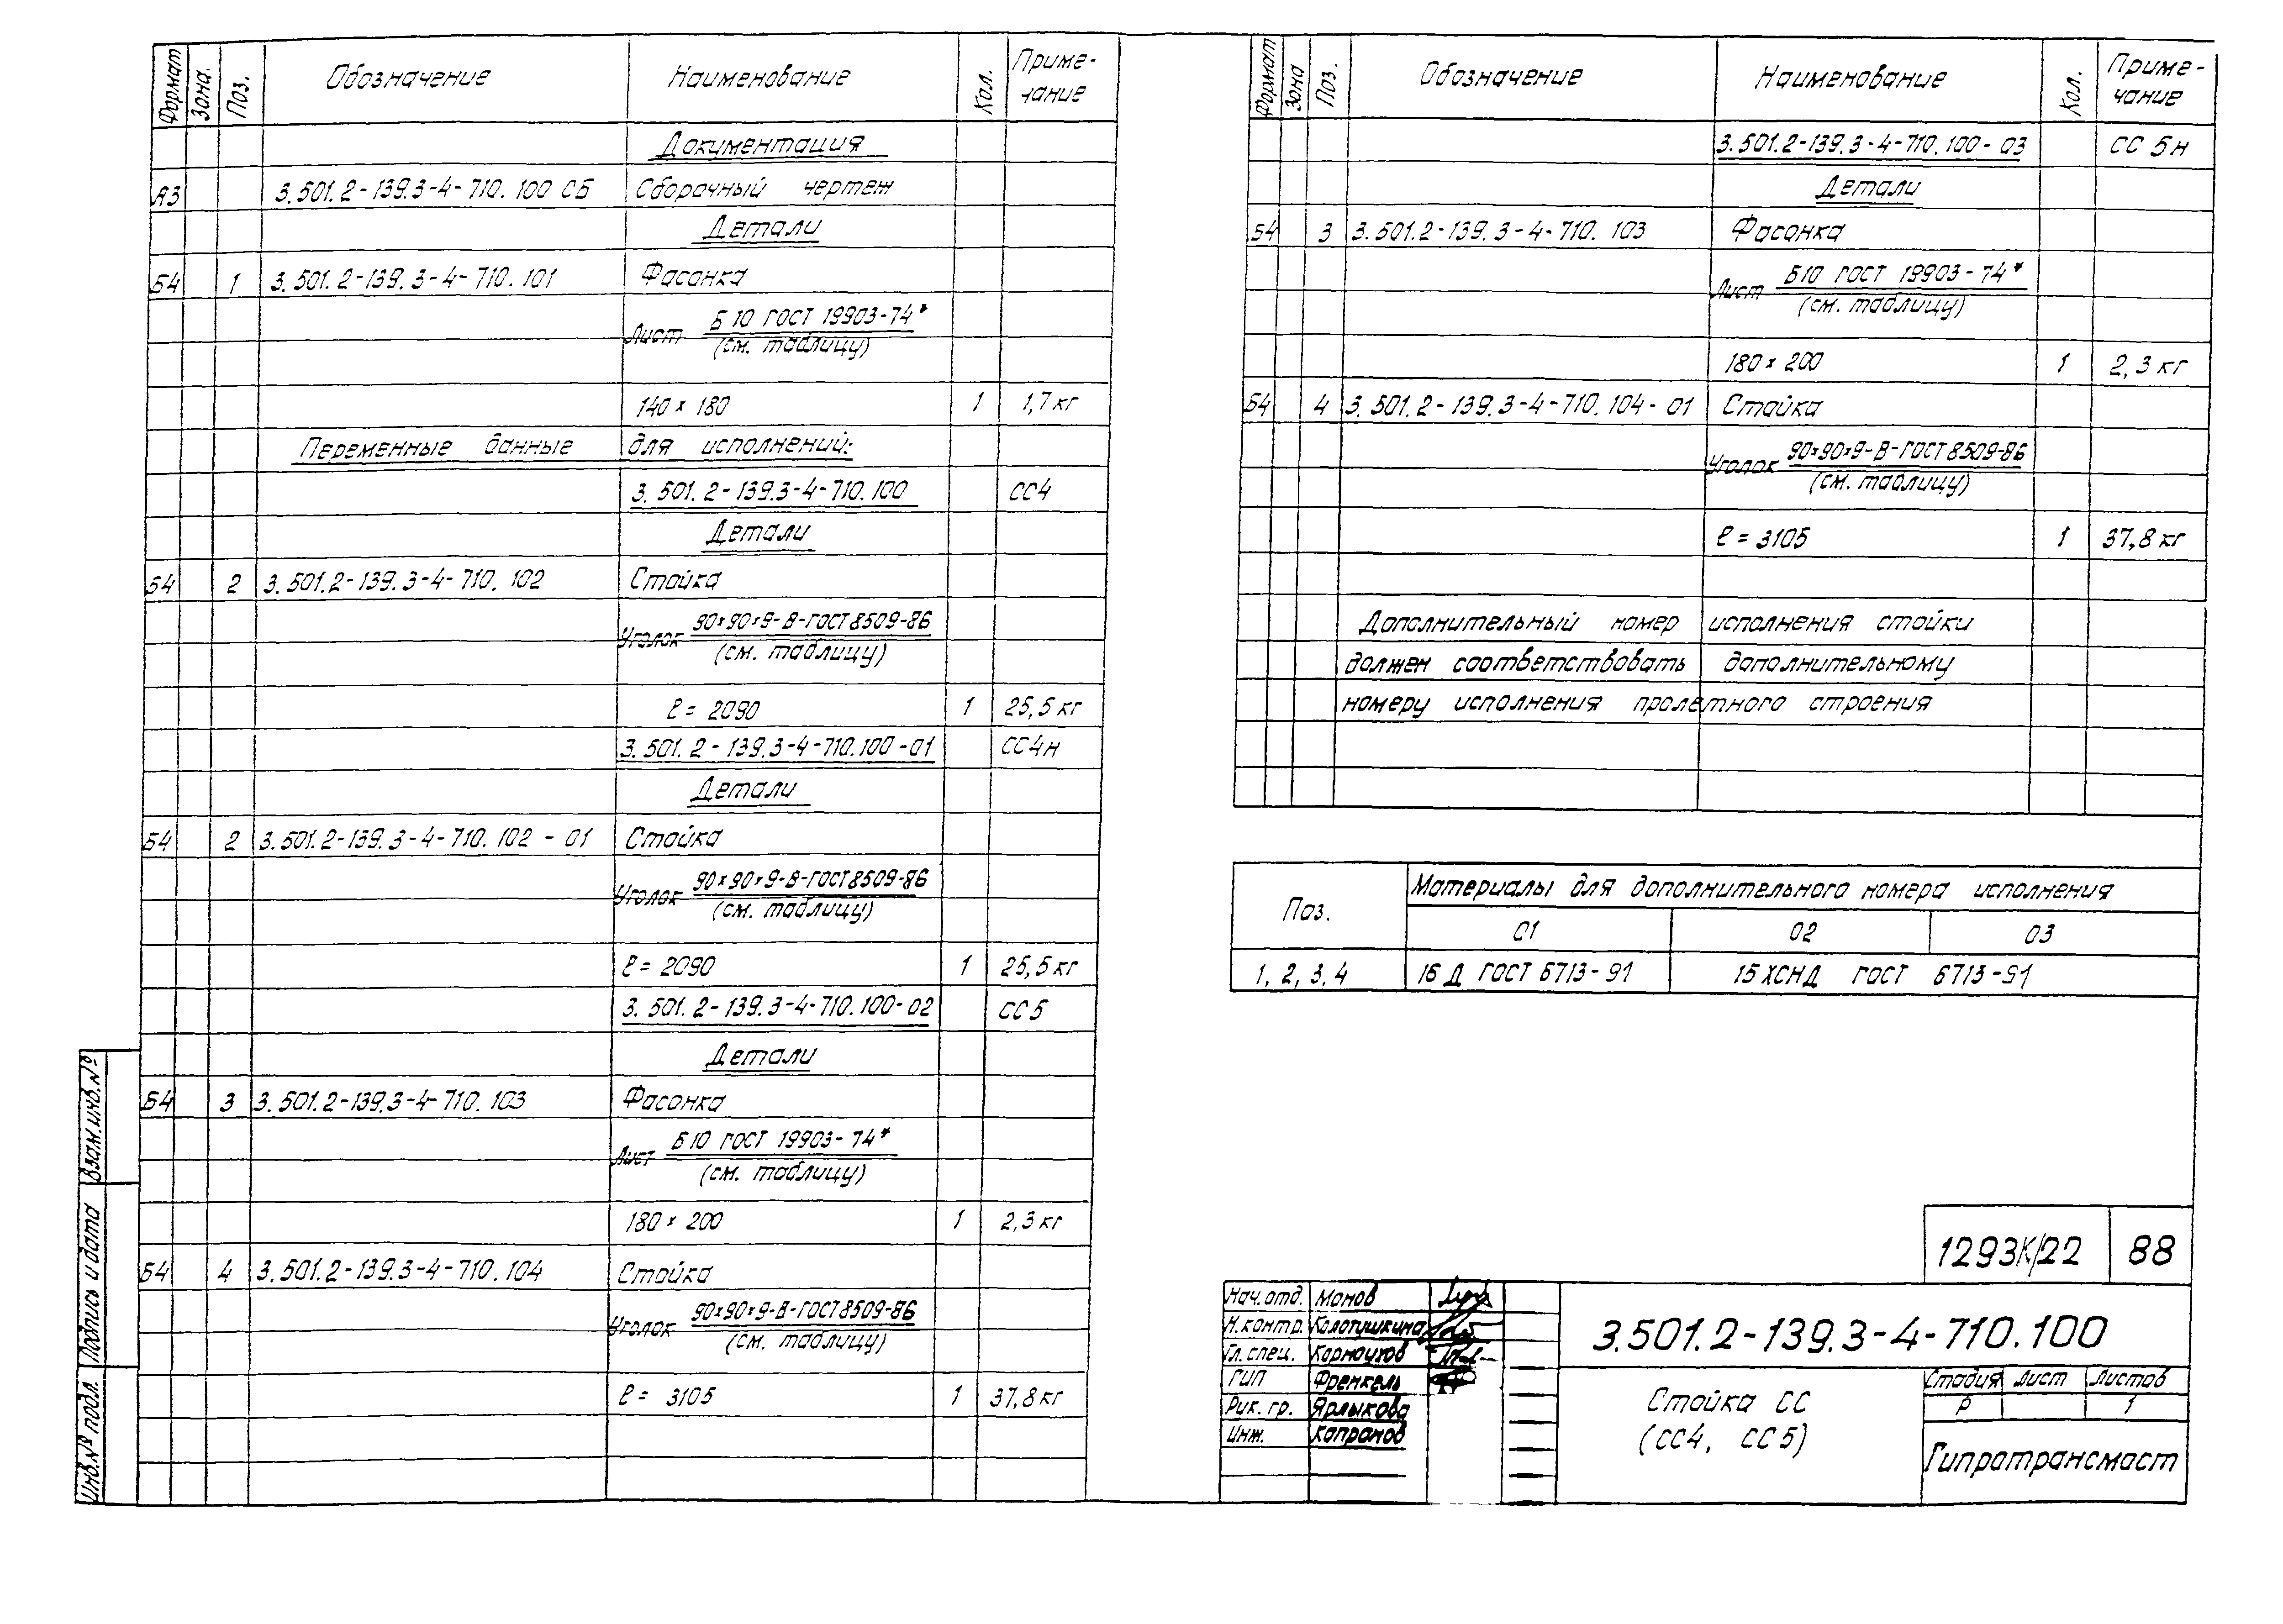 Формат Зона. Поз. Обозначение Наименование Кол. Приме-
чание
Документация
А3 3.501.2-139.3-4-710.100 СБ Сборочный чертеж
Детали
Б4 1 3.501.2-139.3-4-710.101 Фасонка
Лист Б 10 ГОСТ 19903-74*
(см. таблицу)
140 × 180 1 1,7 кг
Переменные данные для исполнений:
3.501.2-139.3-4-710.100 СС4
Детали
Б4 2 3.501.2-139.3-4-710.102 Стойка
Уголок 90×90×9-В-ГОСТ 8509-86
(см. таблицу)
ℓ = 2090 1 25,5 кг
3.501.2-139.3-4-710.100-01 СС4н
Детали
Б4 2 3.501.2-139.3-4-710.102-01 Стойка
Уголок 90×90×9-В-ГОСТ 8509-86
(см. таблицу)
ℓ = 2090 1 25,5 кг
3.501.2-139.3-4-710.100-02 СС5
Детали
Б4 3 3.501.2-139.3-4-710.103 Фасонка
Лист Б10 ГОСТ 19903-74*
(см. таблицу)
180 × 200 1 2,3 кг
Б4 4 3.501.2-139.3-4-710.104 Стойка
Уголок 90×90×9-В-ГОСТ 8509-86
(см. таблицу)
ℓ = 3105 1 37,8 кг
Взам.инв.№
Подпись и дата
Инв.№ подл.
Формат Зона Поз. Обозначение Наименование Кол. Приме-
чание
3.501.2-139.3-4-710.100-03 СС 5н
Детали
Б4 3 3.501.2-139.3-4-710.103 Фасонка
Лист Б10 ГОСТ 19903-74*
(см. таблицу)
180 × 200 1 2,3 кг
Б4 4 3.501.2-139.3-4-710.104-01 Стойка
Уголок 90×90×9-В-ГОСТ 8509-86
(см. таблицу)
ℓ = 3105 1 37,8 кг
Дополнительный номер исполнения стойки
должен соответствовать дополнительному
номеру исполнения пролетного строения
Поз. Материалы для дополнительного номера исполнения
01 02 03
1, 2, 3, 4 16 Д ГОСТ 6713-91 15ХСНД ГОСТ 6713-91
1293К/22 88
Нач.отд. Монов
Н.контр. Колотушкина
Гл.спец. Корноухов
ГИП Френкель
Рук. гр. Ярлыкова
Инж. Капранов
3.501.2-139.3-4-710.100
Стойка СС
(СС4, СС5)
Стадия Лист Листов
Р 1
Гипротрансмост